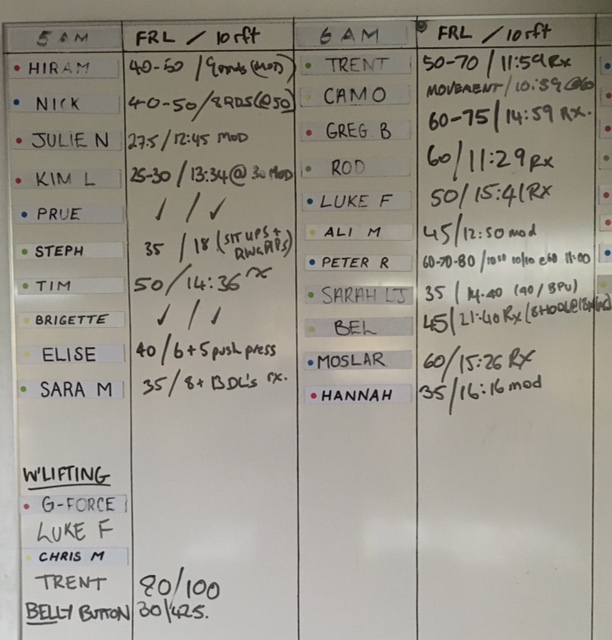 5 AM FRL / 10 rft
HIRAM 40-50 / 9 rnds (mod)
NICK 40-50 / 8 RDS (@50)
JULIE N 27.5 / 12:45 MOD
KIM L 25-30 / 13:34 @ 30 MOD
PRUE ✓ / ✓
STEPH 35 / 18 (SIT UPS +
TIM 50 / 14:36 rx
BRIGETTE ✓ / ✓
ELISE 40 / 6 + 5 push press
SARA M 35 / 8 + 13 DL's rx.
W'LIFTING
G-FORCE
LUKE F
CHRIS M
TRENT 80/100
BELLY BUTTON 30/42.5.
6 AM FRL / 10 rft
TRENT 50-70 / 11:59 Rx
CAMO MOVEMENT / 10:39 @60
GREG B 60-75 / 14:59 RX.
ROD 60 / 11:29 Rx
LUKE F 50 / 15:41 Rx
ALI M 45 / 12:50 mod
PETER R 60-70-80 / 10/10 @60 11:00
SARAH LJ 35 / 14.40
BEL 45 / 21:40 Rx
MOSLAR 60 / 15:26 RX
HANNAH 35 / 16:16 mod